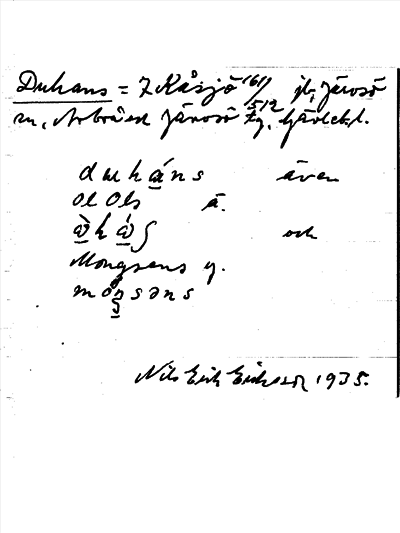 Duhans = 7 Kåsjö 161/ jb, Järvsö
m, Arbrå sn Järvsö 512 tg. Gävlebl.
duháns även
Ol Ols ä.
ẁhẃʃ och
Mongsens g.
móŋsəns
Nils Erik Eriksson 1935.